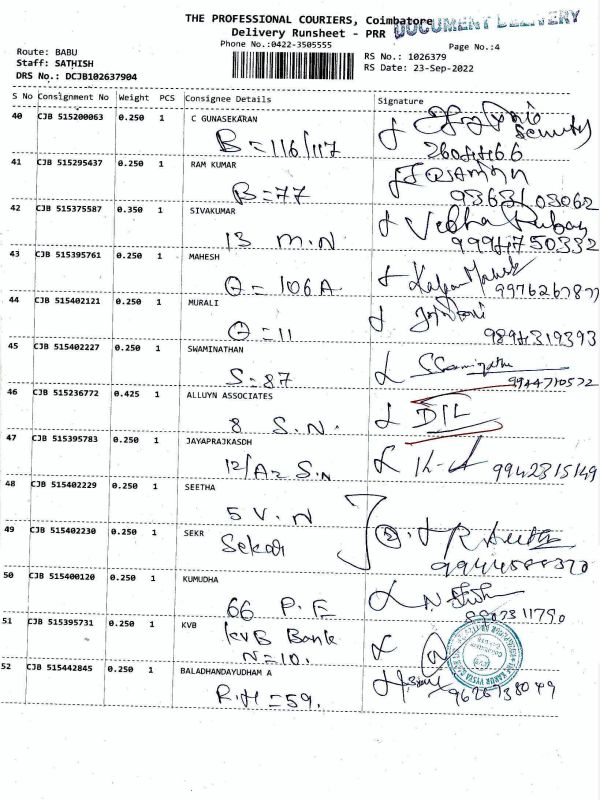 THE PROFESSIONAL COURIERS, Coimbatore
DOCUMENT DELIVERY
Delivery Runsheet - PRR
Phone No.:0422-3505555
Page No.:4
Route: BABU
Staff: SATHISH
DRS No.: DCJB102637904
RS No.: 1026379
RS Date: 23-Sep-2022
S No Consignment No Weight PCS Consignee Details Signature
40 CJB 515200063 0.250 1 C GUNASEKARAN
B = 116/117
Security
41 CJB 515295437 0.250 1 RAM KUMAR
B = 77
9363103062
42 CJB 515375587 0.350 1 SIVAKUMAR
13 M.N
9994750332
43 CJB 515395761 0.250 1 MAHESH
106A
9976267877
44 CJB 515402121 0.250 1 MURALI
= 11
9894319393
45 CJB 515402227 0.250 1 SWAMINATHAN
S = 87
9944710572
46 CJB 515236772 0.425 1 ALLUYN ASSOCIATES
8 S.N.
47 CJB 515395783 0.250 1 JAYAPRAJKASDH
12/A2 S.N
9942315149
48 CJB 515402229 0.250 1 SEETHA
5 V.N
49 CJB 515402230 0.250 1 SEKR
Sekar
50 CJB 515400120 0.250 1 KUMUDHA
66 P.E
51 CJB 515395731 0.250 1 KVB
KVB Bank
N = 10.
52 CJB 515442845 0.250 1 BALADHANDAYUDHAM A
R.H = 59.
9626738049